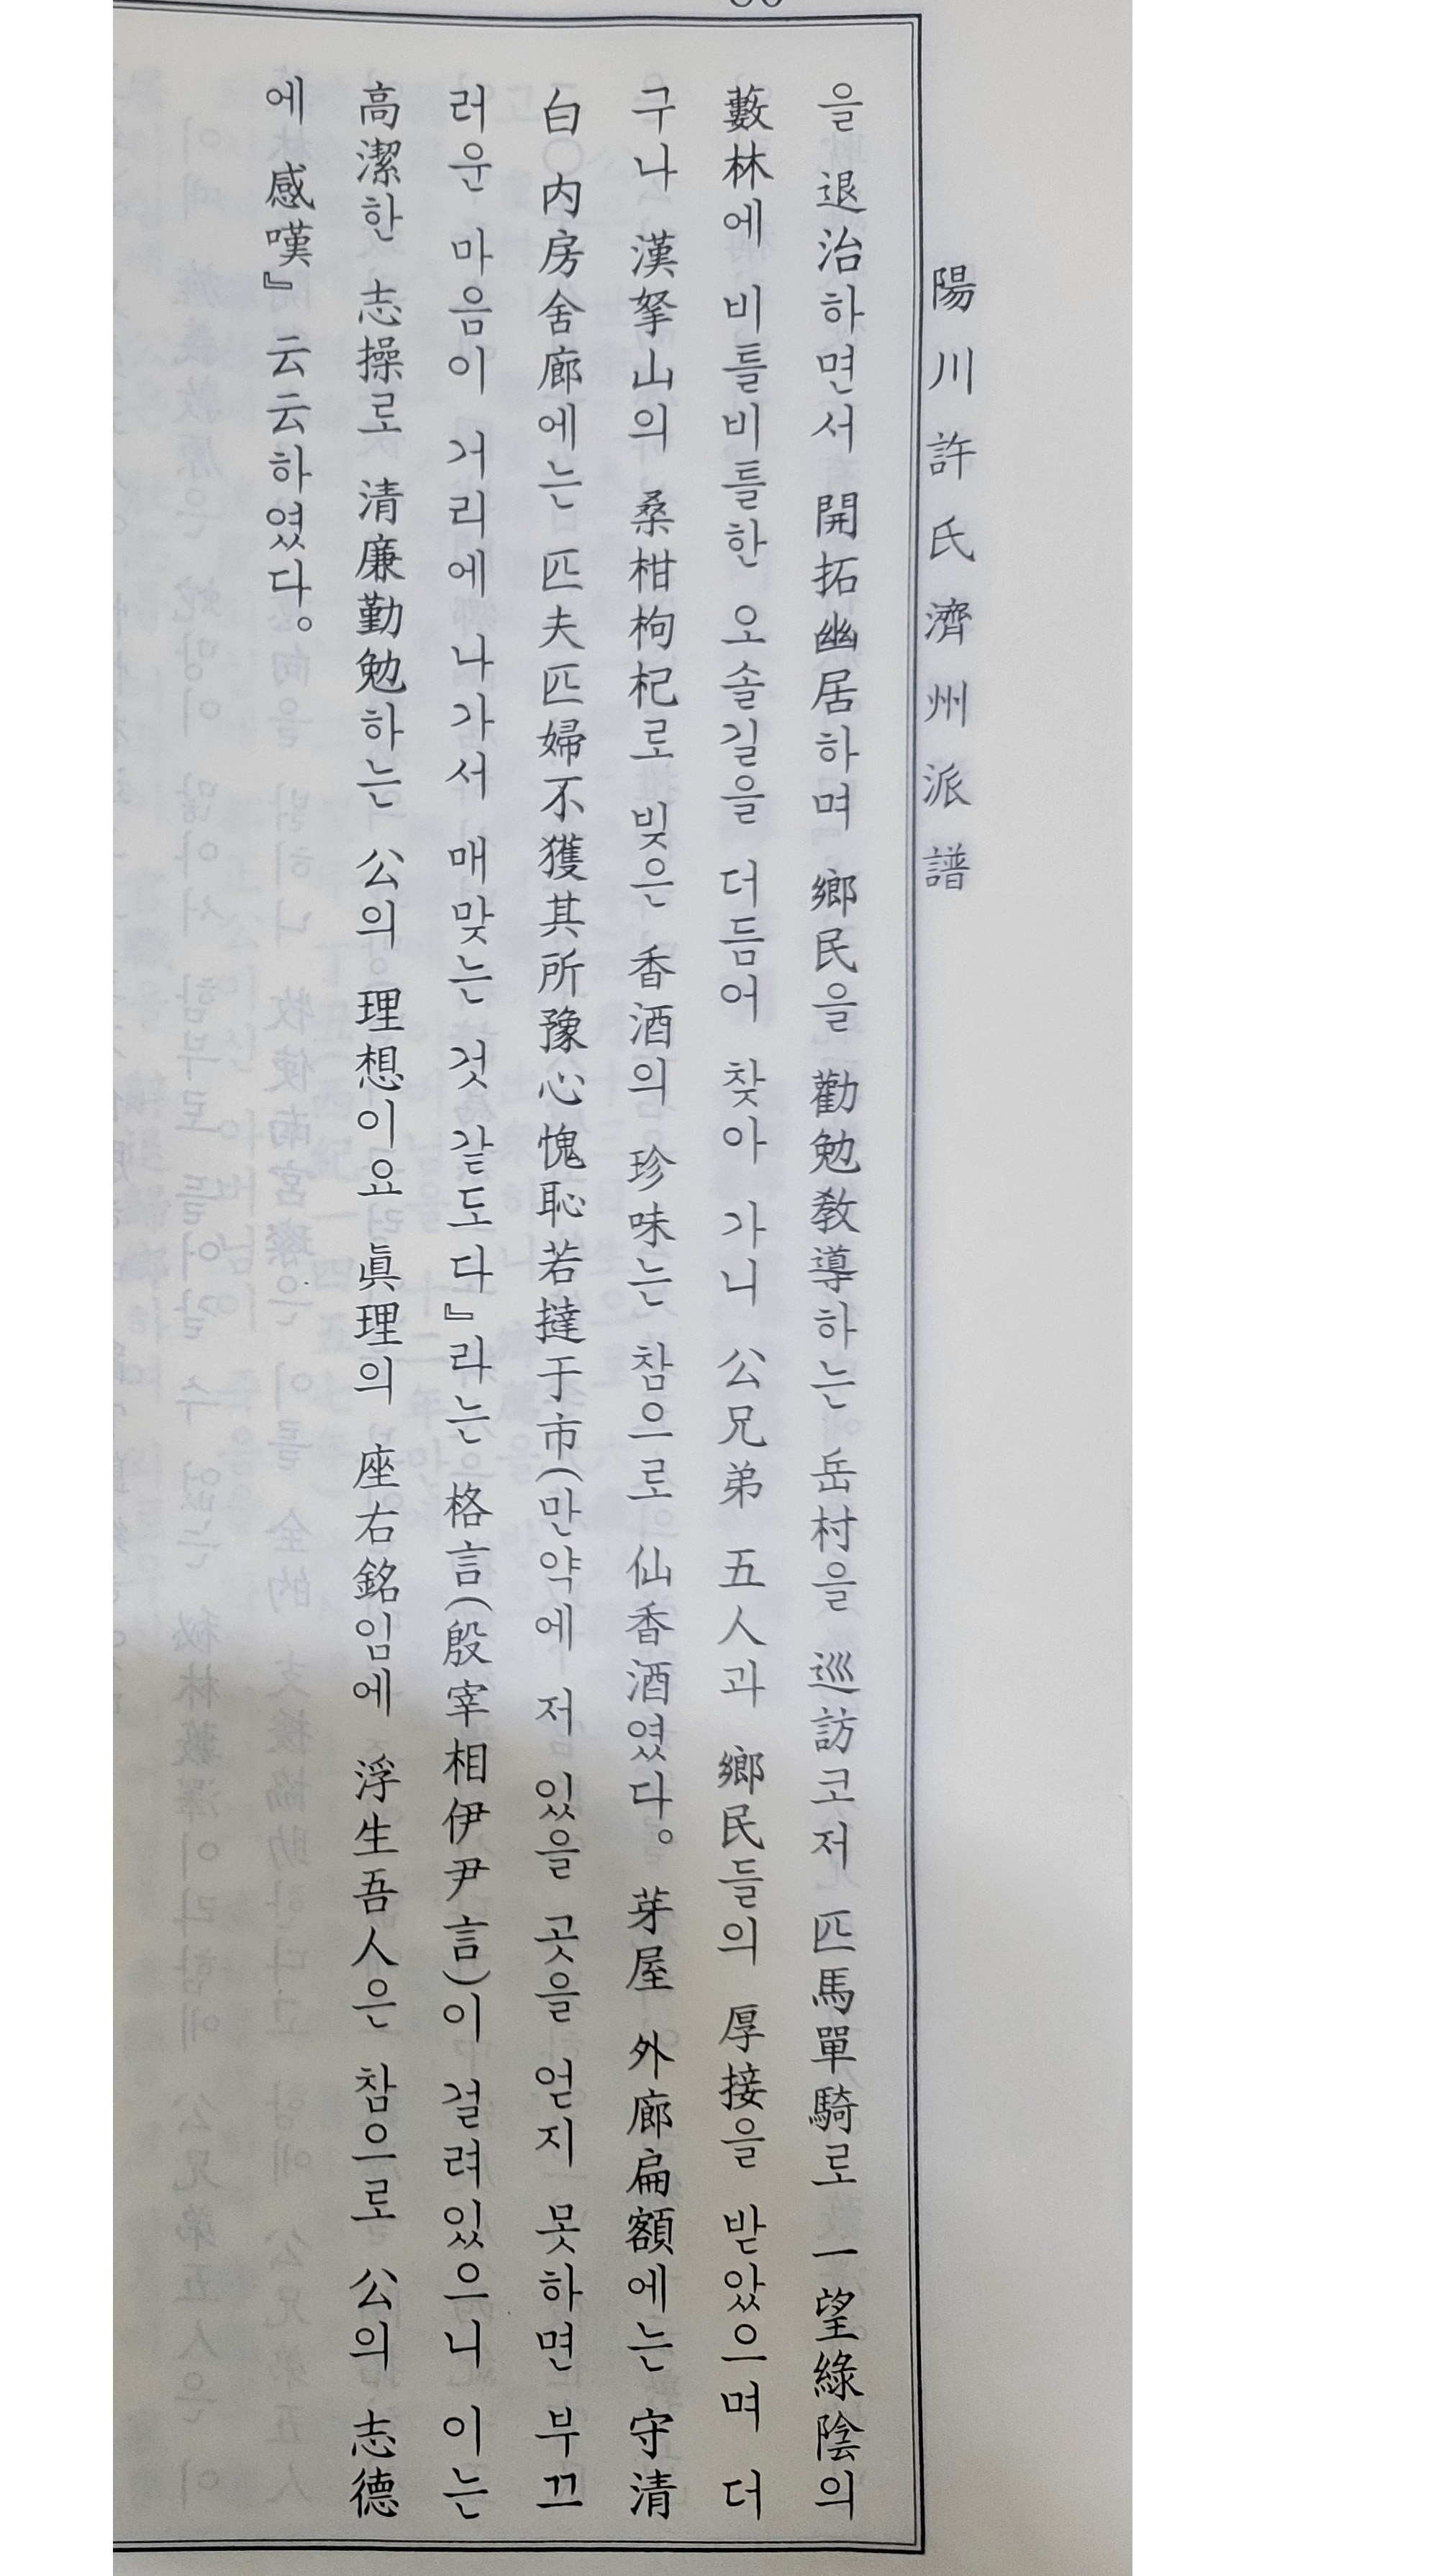 陽川許氏濟州派譜
을 退治하면서 開拓幽居하며 鄉民을 勸勉敎導하는 岳村을 巡訪코저 匹馬單騎로 一望綠陰의
藪林에 비틀비틀한 오솔길을 더듬어 찾아 가니 公兄弟 五人과 鄉民들의 厚接을 받았으며 더
구나 漢拏山의 桑柑枸杞로 빚은 香酒의 珍味는 참으로 仙香酒였다。 芽屋 外廊扁額에는 守清
白〇內房舍廊에는 匹夫匹婦不獲其所豫心愧恥若撻于市(만약에 저 있을 곳을 얻지 못하면 부끄
러운 마음이 거리에 나가서 매맞는 것 같도다』라는 格言(殷宰相伊尹言)이 걸려있으니 이는
高潔한 志操로 清廉勤勉하는 公의 理想이요 眞理의 座右銘임에 浮生吾人은 참으로 公의 志德
에 感嘆』云云하였다。